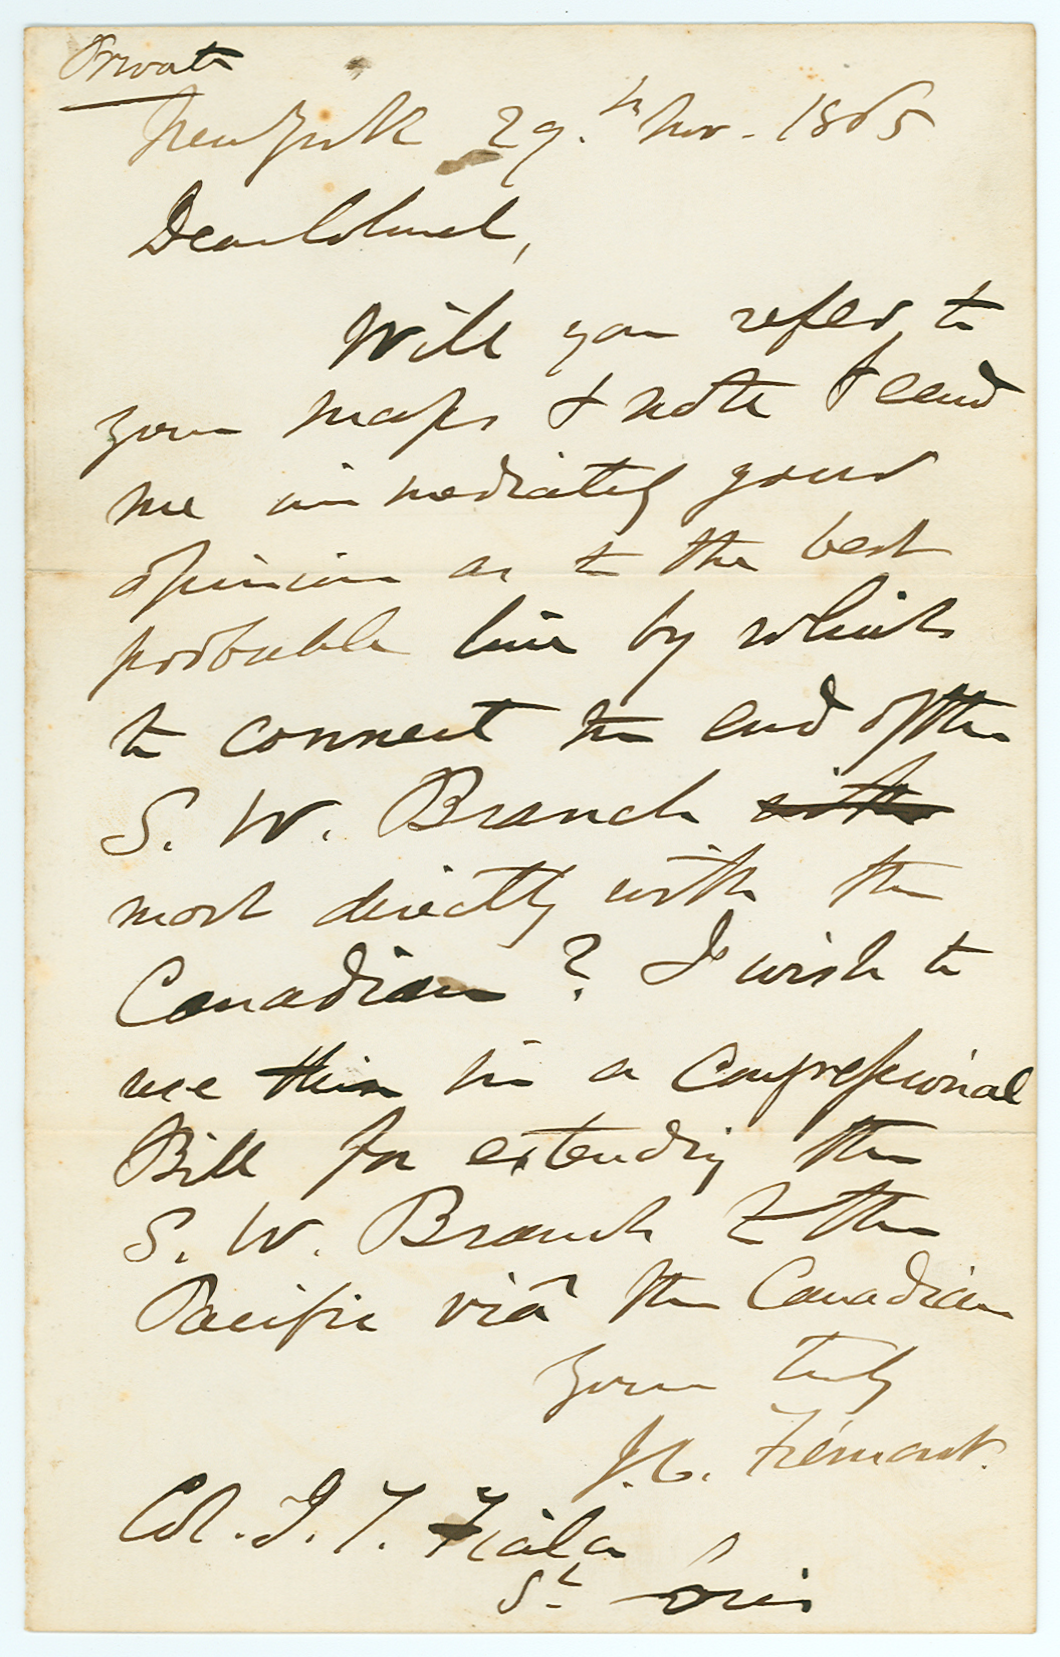 Private
New York 29.th Nov. 1865
Dear Colonel,
Will you refer to
your maps & note & send
me immediately your
opinion as to the best
probable line by which
to connect the end of the
S. W. Branch with
most directly with the
Canadian? I wish to
use this in a Congressional
Bill for extending the
S. W. Branch to the
Pacific viâ the Canadian
Yours truly
J. C. Frémont.
Col. J. T. Fiala
St Louis